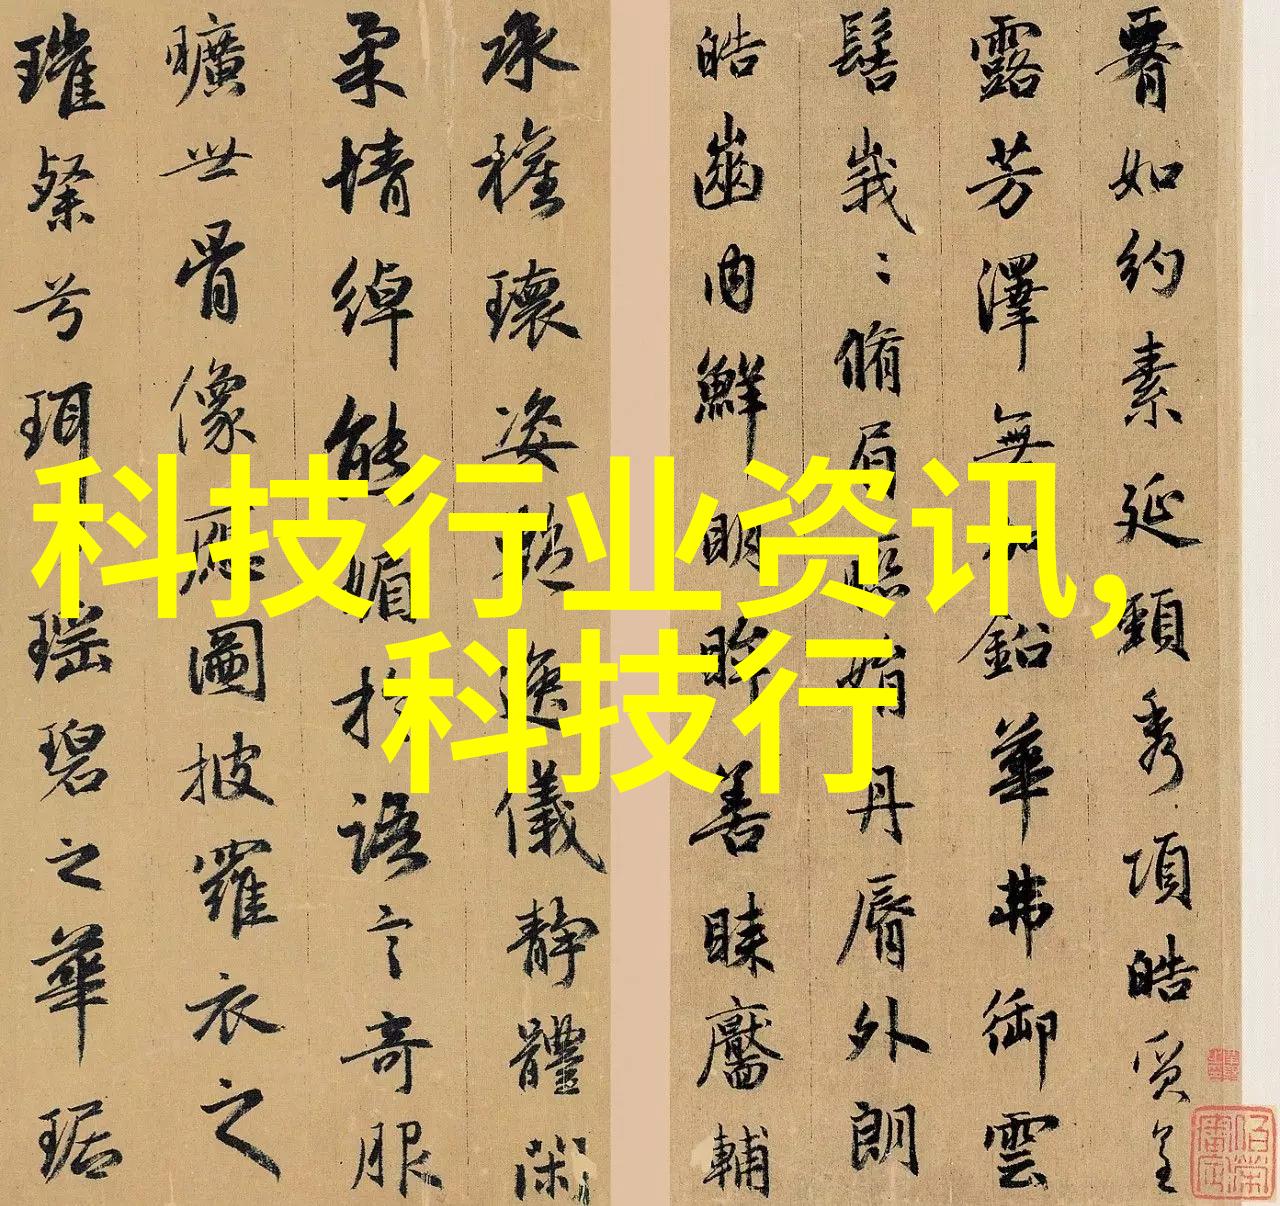 腰如約素延頸秀項皓質呈
露芳澤無加鉛華弗御雲
髻峩〻脩眉聯娟丹脣外朗
皓齒内鮮明眸善睞靨輔
承權瓌姿艷逸儀靜體閑
柔情綽態媚於語言奇服
曠世骨像應圖披羅衣之
璀粲兮珥瑤碧之華琚
科技行业资讯,
科技行